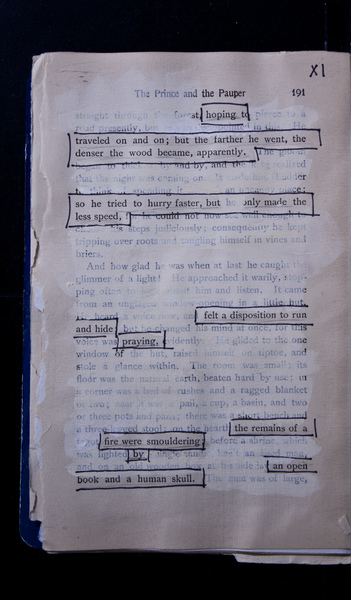 XI
The Prince and the Pauper 191
straight through the forest, hoping to pierce to a
road presently, but
traveled on and on; but the farther he went, the
denser the wood became, apparently. The gloom
that the night was coming on.
so he tried to hurry faster, but he only made the
less speed, for he could not now see well enough to
his steps judiciously; consequently he kept
tripping over roots and tangling himself in vines and
briers.
And how glad he was when at last he caught the
glimmer of a light! He approached it warily, stop-
ping often to look about him and listen. It came
from an unglazed window-opening in a little hut.
He heard a voice now, and felt a disposition to run
and hide; but he changed his mind at once, for this
voice was praying, evidently. He glided to the one
window of the hut, raised himself on tiptoe, and
stole a glance within. The room was small; its
floor was the natural earth, beaten hard by use; in
a corner was a bed of rushes and a ragged blanket
or two; near it was a pail, a cup, a basin, and two
or three pots and pans; there was a short bench and
a three-legged stool; on the hearth the remains of a
fire were smouldering; before a shrine, which
was lighted by a single candle, knelt an aged man,
and on an old wooden box at his side lay an open
book and a human skull. The man was of large,